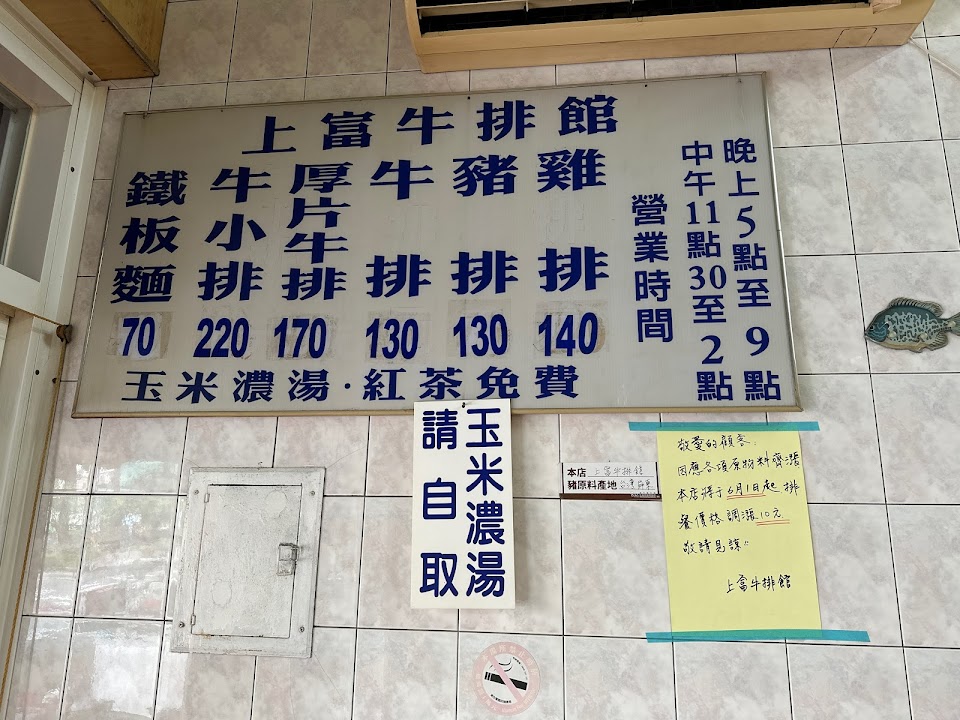 上富牛排館
晚上5點至9點
中午11點30至2點
營業時間
雞排 140
豬排 130
牛排 130
厚片牛排 170
牛小排 220
鐵板麵 70
玉米濃湯·紅茶免費
玉米濃湯
請自取
本店 上富牛排館
豬原料產地 台灣屏東
敬愛的顧客:
因應各項原物料齊漲
本店將于6月1日起排
餐價格調漲10元
敬請見諒!!
上富牛排館